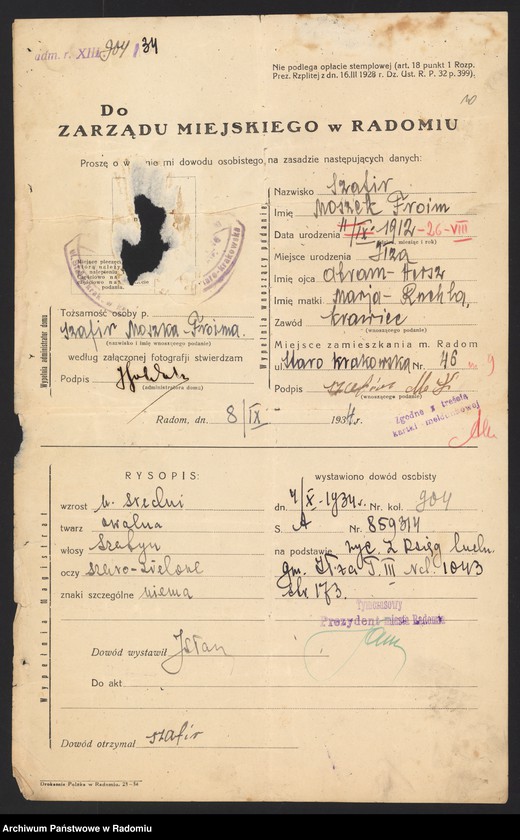 adm. r. XIII 904 / 34
Nie podlega opłacie stemplowej (art. 18 punkt 1 Rozp.
Prez. Rzplitej z dn. 16.III 1928 r. Dz. Ust. R. P. 32 p. 399).
Do
ZARZĄDU MIEJSKIEGO w RADOMIU
Proszę o w nie mi dowodu osobistego na zasadzie następujących danych:
Wypełnia wnoszący podanie
Nazwisko Szafir
Imię Moszek Froim
Data urodzenia 4/IX 1912 - 26 - VIII
miesiąc i rok)
Miejsce urodzenia Iłża
Imię ojca Abram-Hersz
Imię matki Marja-Ruchla
Zawód krawiec
(wnoszącego podanie)
Miejsce zamieszkania m. Radom
ul. Staro krakowska Nr. 46 9
Podpis Szafir M. F.
(wnoszącego podanie)
Zgodne z treścią
kartki meldunkowej
Wypełnia administrator domu
Tożsamość osoby p.
Szafir Moszka-Froima
(nazwisko i imię wnoszącego podanie)
według załączonej fotografji stwierdzam
Podpis
(administratora domu)
Radom, dn. 8/IX 1934 r.
Wypełnia Magistrat
RYSOPIS:
wzrost średni
twarz owalna
włosy szatyn
oczy szaro-zielone
znaki szczególne niema
wystawiono dowód osobisty
dn. 4/X-1934 r. Nr. kol. 904
S. A Nr. 859314
na podstawie wyc. z Ksiąg ludn.
gm. Iłża T. III Nch. 1043
str 173.
Tymczasowy
Prezydent miasta Radomia
Dowód wystawił
Do akt
Dowód otrzymał szafir
Drukarnia Polska w Radomiu.
Archiwum Państwowe w Radomiu